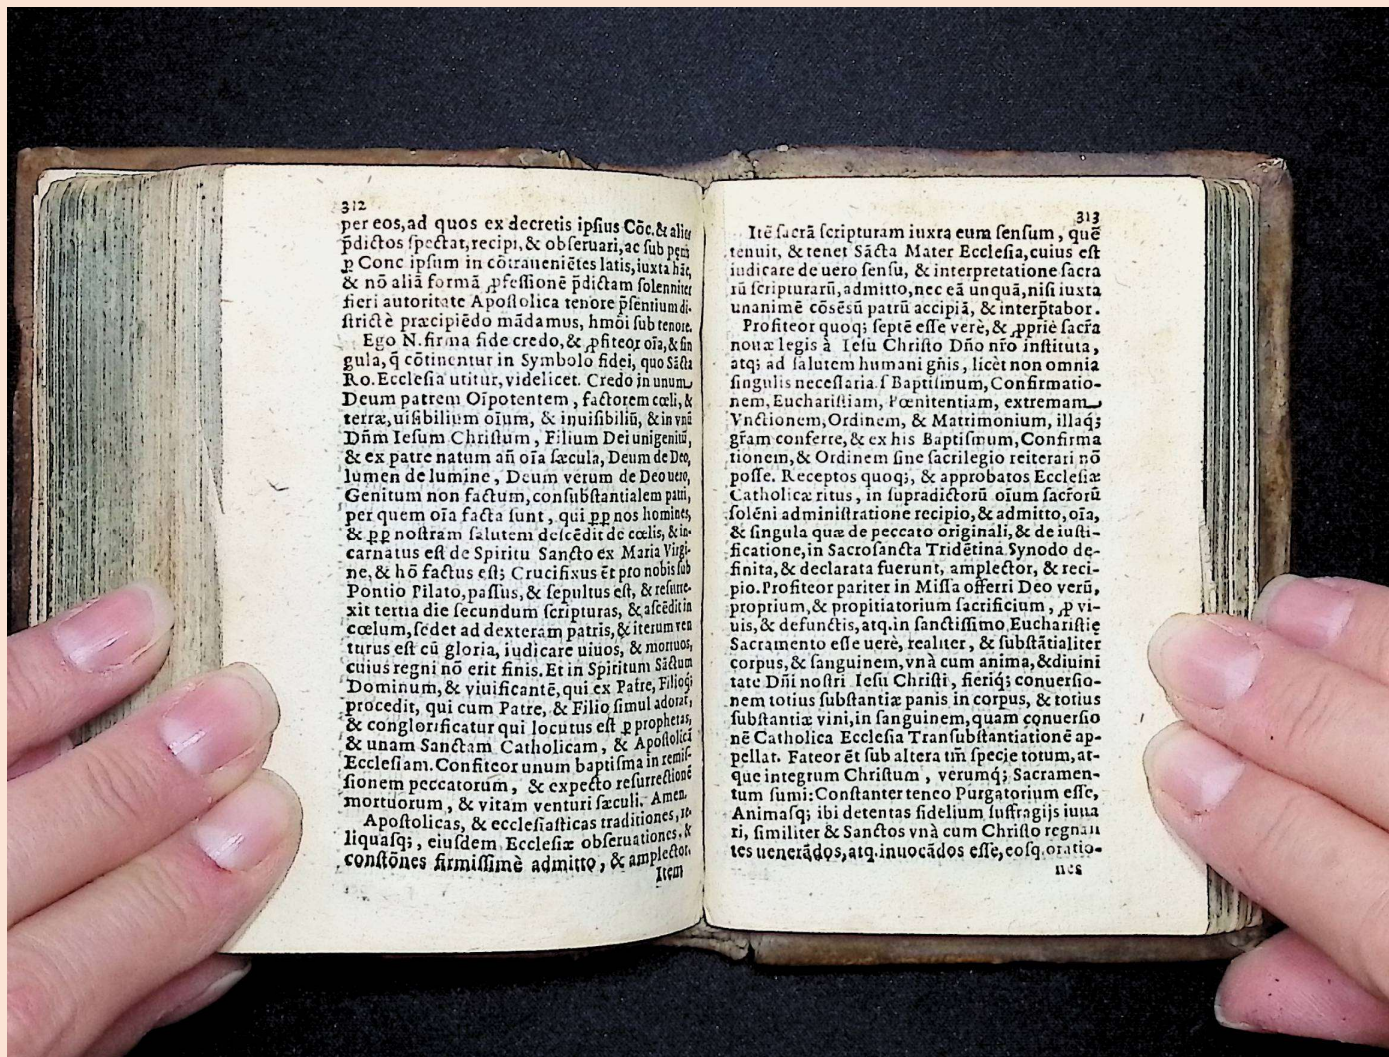 312
per eos,ad quos ex decretis ipſius Cōc.& alios
p̄dictos ſpectat,recipi,& obſeruari,ac ſub pęnis
ꝑ Conc ipſum in cōtraueniētes latis,iuxta hāc,
& nō aliā formā ꝓfeſſionē p̄dictam ſolenniter
fieri autoritate Apoſtolica tenore p̄ſentium di-
ſtrictè præcipiēdo mādamus, hmōi ſub tenore.
Ego N.firma fide credo,& ꝓfiteor oīa,& ſin
gula, q̄ cōtinentur in Symbolo fidei, quo Sācta
Ro.Eccleſia utitur,videlicet. Credo in unum
Deum patrem Oīpotentem , factorem cœli,&
terræ,uiſibilium oīum, & inuiſibiliū, & in vnū
Dn̄m Ieſum Chriſtum , Filium Dei unigenitū,
& ex patre natum an̄ oīa ſæcula, Deum de Deo,
lumen de lumine , Deum verum de Deo uero,
Genitum non factum,conſubſtantialem patri,
per quem oīa facta ſunt , qui ꝓꝑ nos homines,
& ꝓꝑ noſtram ſalutem deſcēdit de cœlis, & in-
carnatus eſt de Spiritu Sancto ex Maria Virgi-
ne,& hō factus eſt; Crucifixus ēt pro nobis ſub
Pontio Pilato,paſſus,& ſepultus eſt, & reſurre-
xit tertia die ſecundum ſcripturas, & aſcēdit in
cœlum,ſedet ad dexteram patris,& iterum ven
turus eſt cū gloria, iudicare uiuos, & mortuos,
cuius regni nō erit finis.Et in Spiritum Sāctum
Dominum,& viuificantē,qui ex Patre, Filioq;
procedit, qui cum Patre, & Filio ſimul adorat,
& conglorificatur qui locutus eſt ꝑ prophetas,
& unam Sanctam Catholicam, & Apoſtolicā
Eccleſiam.Confiteor unum baptiſma in remiſ-
ſionem peccatorum, & expecto reſurrectionē
mortuorum , & vitam venturi ſæculi. Amen.
Apoſtolicas, & eccleſiaſticas traditiones, re-
liquaſq; , eiuſdem Eccleſiæ obſeruationes, &
conſtōnes firmiſſimè admitto, & amplector.
Item
313
Itē ſacrā ſcripturam iuxta eum ſenſum, quē
tenuit, & tenet Sācta Mater Eccleſia,cuius eſt
iudicare de uero ſenſu, & interpretatione ſacra
rū ſcripturarū,admitto,nec eā unquā,niſi iuxta
unanimē cōsēsū patrū accipiā, & interp̄tabor.
Profiteor quoq; ſeptē eſſe verè,& ꝓpriè ſacr̄a
nouæ legis à Ieſu Chriſto Dn̄o nr̄o inſtituta,
atq; ad ſalutem humani gn̄is, licèt non omnia
ſingulis neceſſaria.ſ Baptiſmum,Confirmatio-
nem,Euchariſtiam, Pœnitentiam, extremam
Vnctionem,Ordinem, & Matrimonium, illaq́;
gr̄am conferre,& ex his Baptiſmum,Confirma
tionem,& Ordinem ſine ſacrilegio reiterari nō
poſſe. Receptos quoq;, & approbatos Eccleſiæ
Catholicæ ritus, in ſupradictorū oīum ſacr̄orū
ſolēni adminiſtratione recipio,& admitto,oīa,
& ſingula quæ de peccato originali,& de iuſti-
ficatione,in Sacroſancta Tridētina Synodo de-
finita,& declarata fuerunt, amplector, & reci-
pio.Profiteor pariter in Miſſa offerri Deo verū,
proprium,& propitiatorium ſacrificium, ꝓ vi-
uis,& defunctis,atq.in ſanctiſſimo Euchariſtię
Sacramento eſſe uerè, realiter, & ſubſtātialiter
corpus,& ſanguinem,vnà cum anima,&diuini
tate Dn̄i noſtri Ieſu Chriſti , fieriq́; conuerſio-
nem totius ſubſtantiæ panis in corpus, & totius
ſubſtantiæ vini,in ſanguinem,quam conuerſio
nē Catholica Eccleſia Transubſtantiationē ap-
pellat. Fateor ēt ſub altera tm̄ ſpecie totum,at-
que integrum Chriſtum , verumq́; Sacramen-
tum ſumi:Conſtanter teneo Purgatorium eſſe,
Animaſq; ibi detentas fidelium ſuffragijs iuua
ri, ſimiliter & Sanctos vnà cum Chriſto regnan
tes uenerādos,atq.inuocādos eſſe,eoſq.oratio-
nes